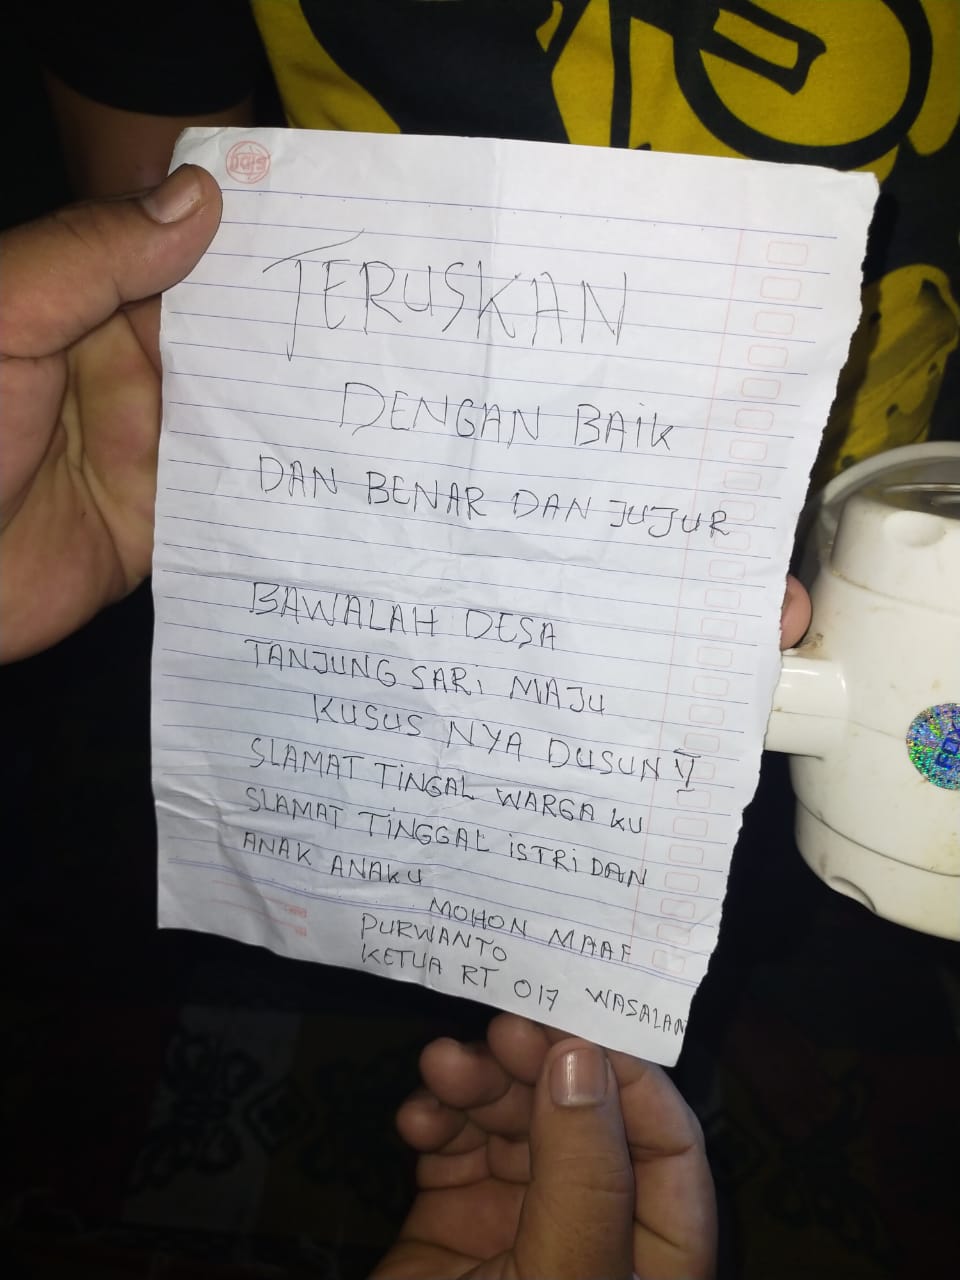 SIDU
TERUSKAN
DENGAN BAIK
DAN BENAR DAN JUJUR
BAWALAH DESA
TANJUNG SARI MAJU
KUSUS NYA DUSUN V
SLAMAT TINGAL WARGA KU
SLAMAT TINGGAL ISTRI DAN
ANAK ANAKU
MOHON MAAF
PURWANTO
KETUA RT 017 WASALAM